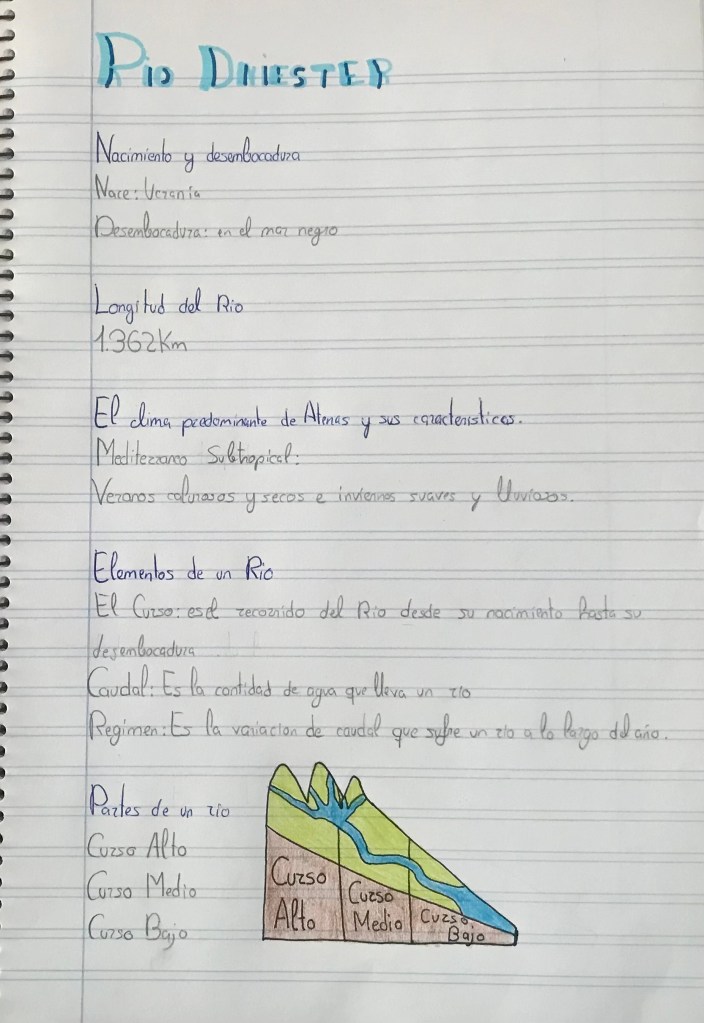 Rio DNIESTER
Nacimiento y desembocadura
Nace: Ucrania
Desembocadura: en el mar negro
Longitud del Rio
1.362Km
El clima predominante de Atenas y sus caracteristicas.
Mediterraneo Subtropical:
Veranos calurosos y secos e inviernos suaves y lluviosos.
Elementos de un Rio
El Curso: es el recorrido del Rio desde su nacimiento hasta su
desembocadura
Caudal: Es la cantidad de agua que lleva un rio
Regimen: Es la variacion de caudal que sufre un rio a lo largo del año.
Partes de un rio
Curso Alto
Curso Medio
Curso Bajo
Curso
Alto
Curso
Medio
Curso
Bajo